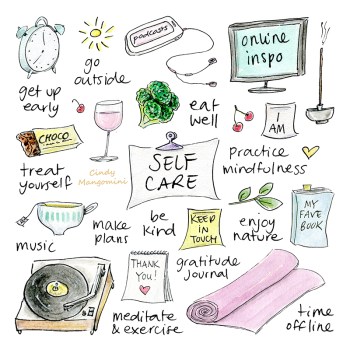 podcasts
online
inspo
go
outside
get up
early
eat
well
I
AM
CHOCO
SELF
CARE
treat
yourself
Cindy
Mangomini
practice
mindfulness
MY
FAVE
BOOK
music
make
plans
be
kind
KEEP
IN
TOUCH
enjoy
nature
THANK
YOU!
gratitude
journal
meditate
& exercise
time
offline